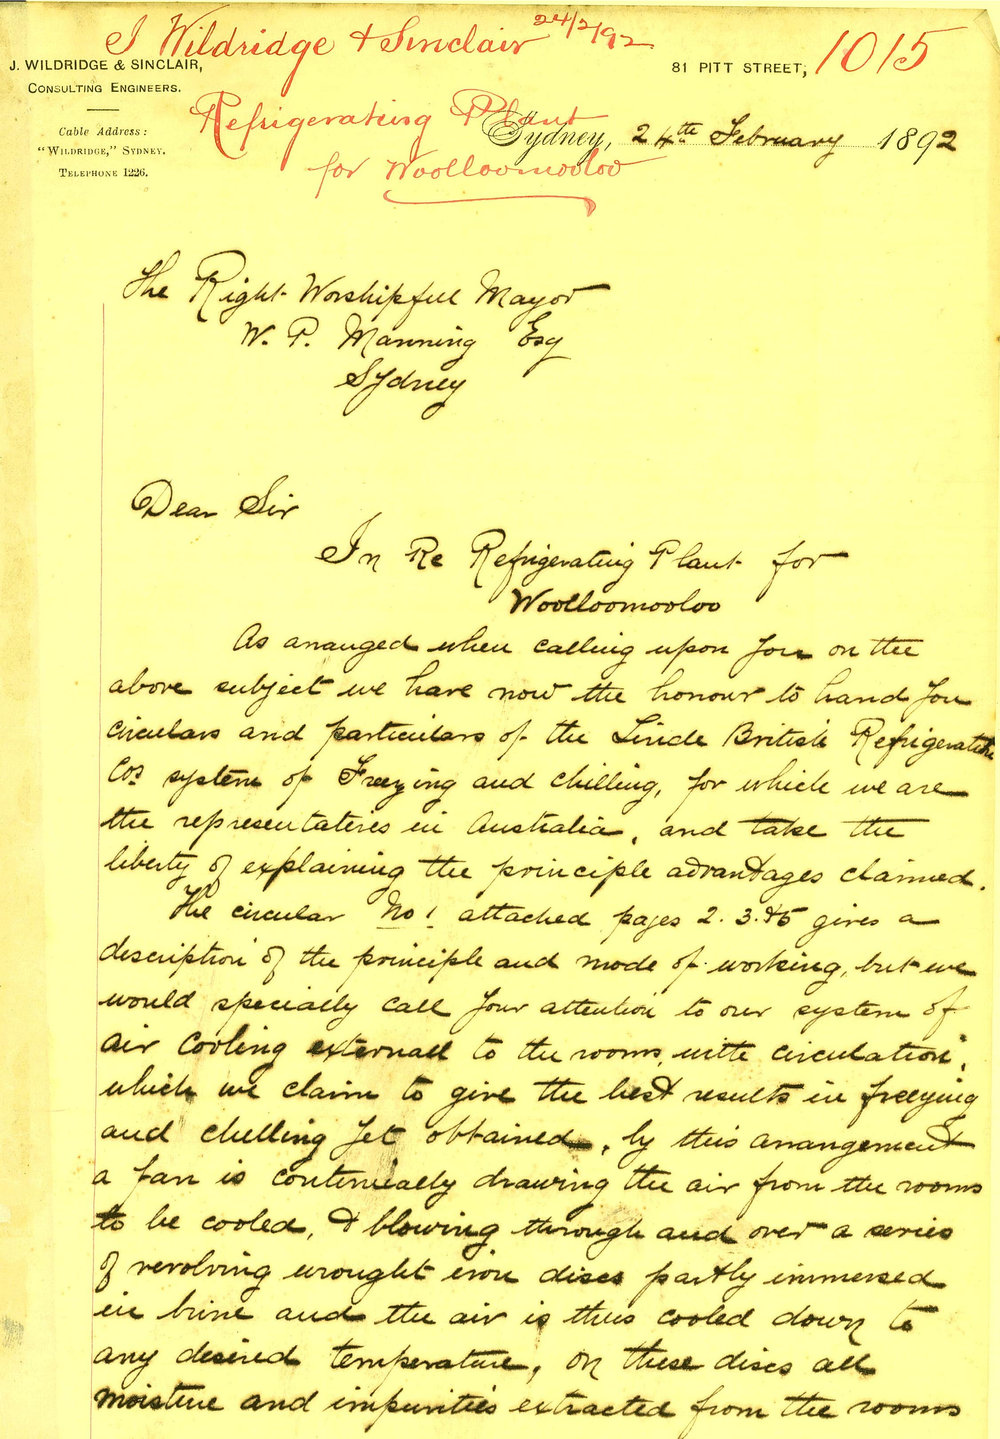 J Wildridge & Sinclair 24/2/92
J. WILDRIDGE & SINCLAIR,
CONSULTING ENGINEERS.
81 PITT STREET, 1015
Cable Address:
"WILDRIDGE," SYDNEY.
TELEPHONE 1226.
Refrigerating Plant
for Woolloomooloo
Sydney, 24th February 1892
The Right Worshipful Mayor
W. P. Manning Esq
Sydney
Dear Sir
In Re Refrigerating Plant for
Woolloomooloo
As arranged when calling upon you on the
above subject we have now the honour to hand you
circulars and particulars of the Linde British Refrigeration
Cos system of Freezing and Chilling, for which we are
the representatives in Australia, and take the
liberty of explaining the principle advantages claimed.
The circular No 1 attached pages 2. 3. & 5 gives a
description of the principle and mode of working, but we
would specially call your attention to our system of
air cooling external to the rooms, with circulation",
which we claim to give the best results in freezing
and chilling yet obtained, by this arrangement
a fan is continually drawing the air from the rooms
to be cooled, & blowing through and over a series
of revolving wrought iron discs partly immersed
in brine and the air is thus cooled down to
any desired temperature, on these discs all
moisture and impurities extracted from the rooms